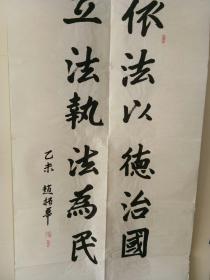 依法以德治國
立法執法為民
乙未 趙拓軍